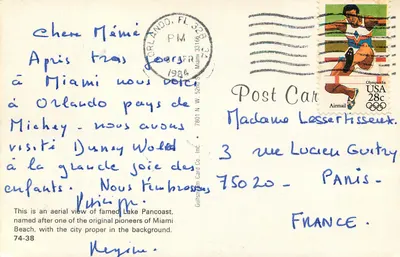 Chere Mémé
Après trois jours
à Miami nous voici
à Orlando pays de
Mickey - nous avons
visité Disney World
à la grande joie des
enfants. Nous t'embrassons
Philippe
Regine
This is an aerial view of famed Lake Pancoast,
named after one of the original pioneers of Miami
Beach, with the city proper in the background.
74-38
ORLANDO, FL 328
PM
1984
Post Car
Olympics 84
USA
28c
Airmail
Madame Lessertisseux
3 rue Lucien Guitry
75020 - PARIS-
FRANCE.